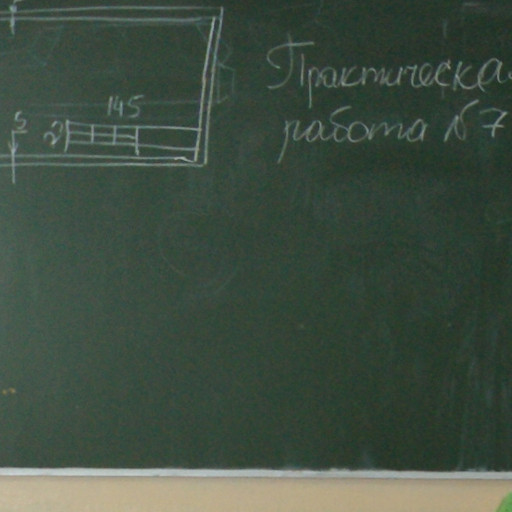 145
5
Практическая
работа №7